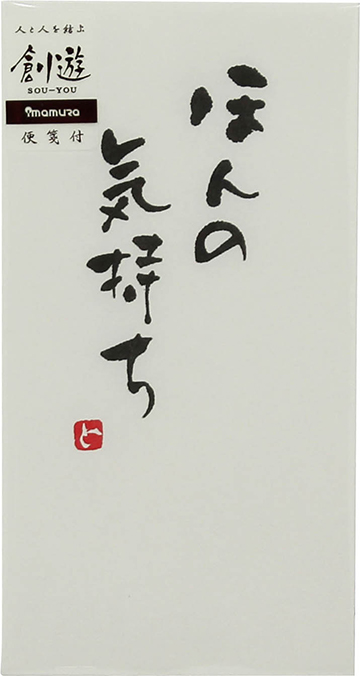 人と人を結ぶ
創遊
SOU-YOU
imamura
便箋付
ほんの
気持ち